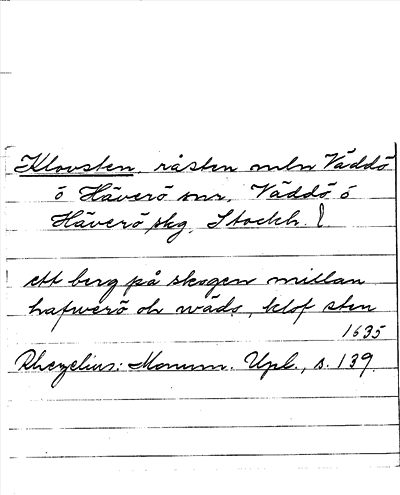 Klovsten, råsten mln Väddö
o Häverö snr, Väddö o
Häverö skg, Stockh. l
ett berg på skogen millan
hafwerö och wäds, klof sten
1635
Rhezelius: Monum. Upl., s. 139.